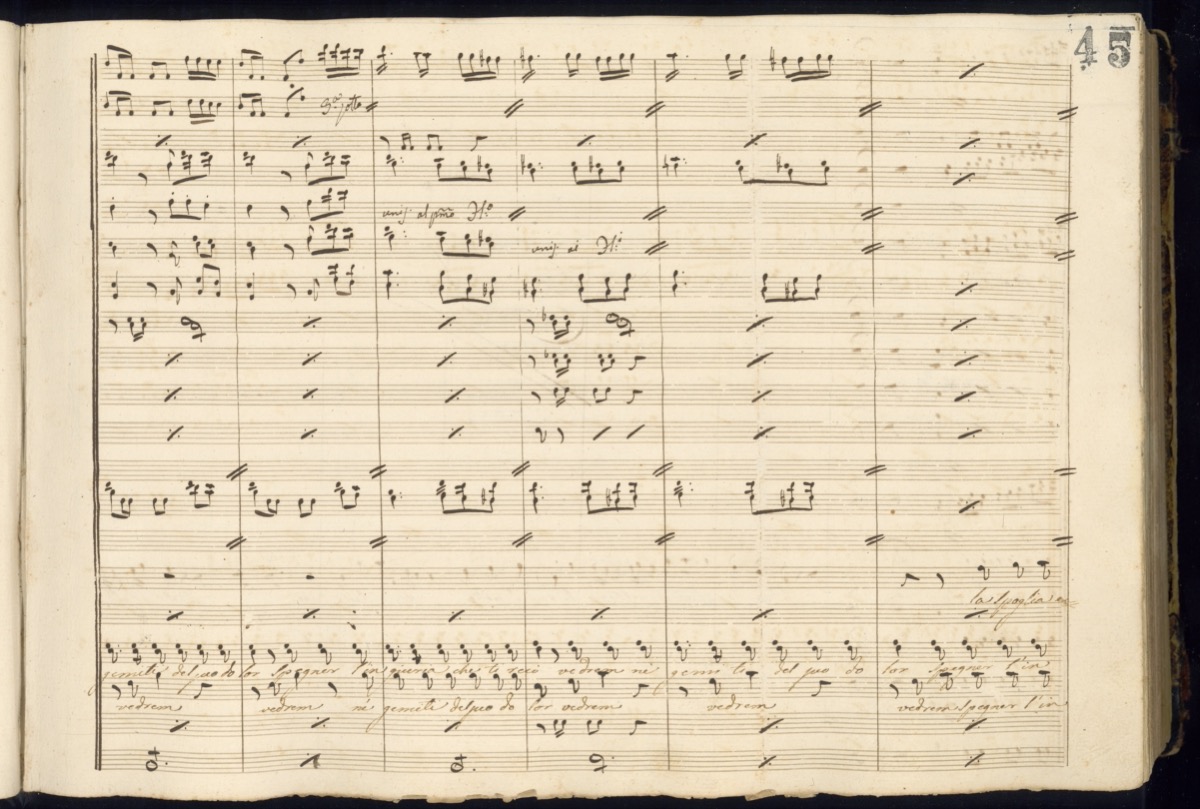 45
8va sotto
unis. al pmo
unis. al
la spoglia
gemiti del suo do lor spegner l'in giuria che ti recò vedrem ne' gemi ti del suo do lor spegner l'in
vedrem vedrem ne' gemiti del suo do lor vedrem vedrem vedrem spegner l'in